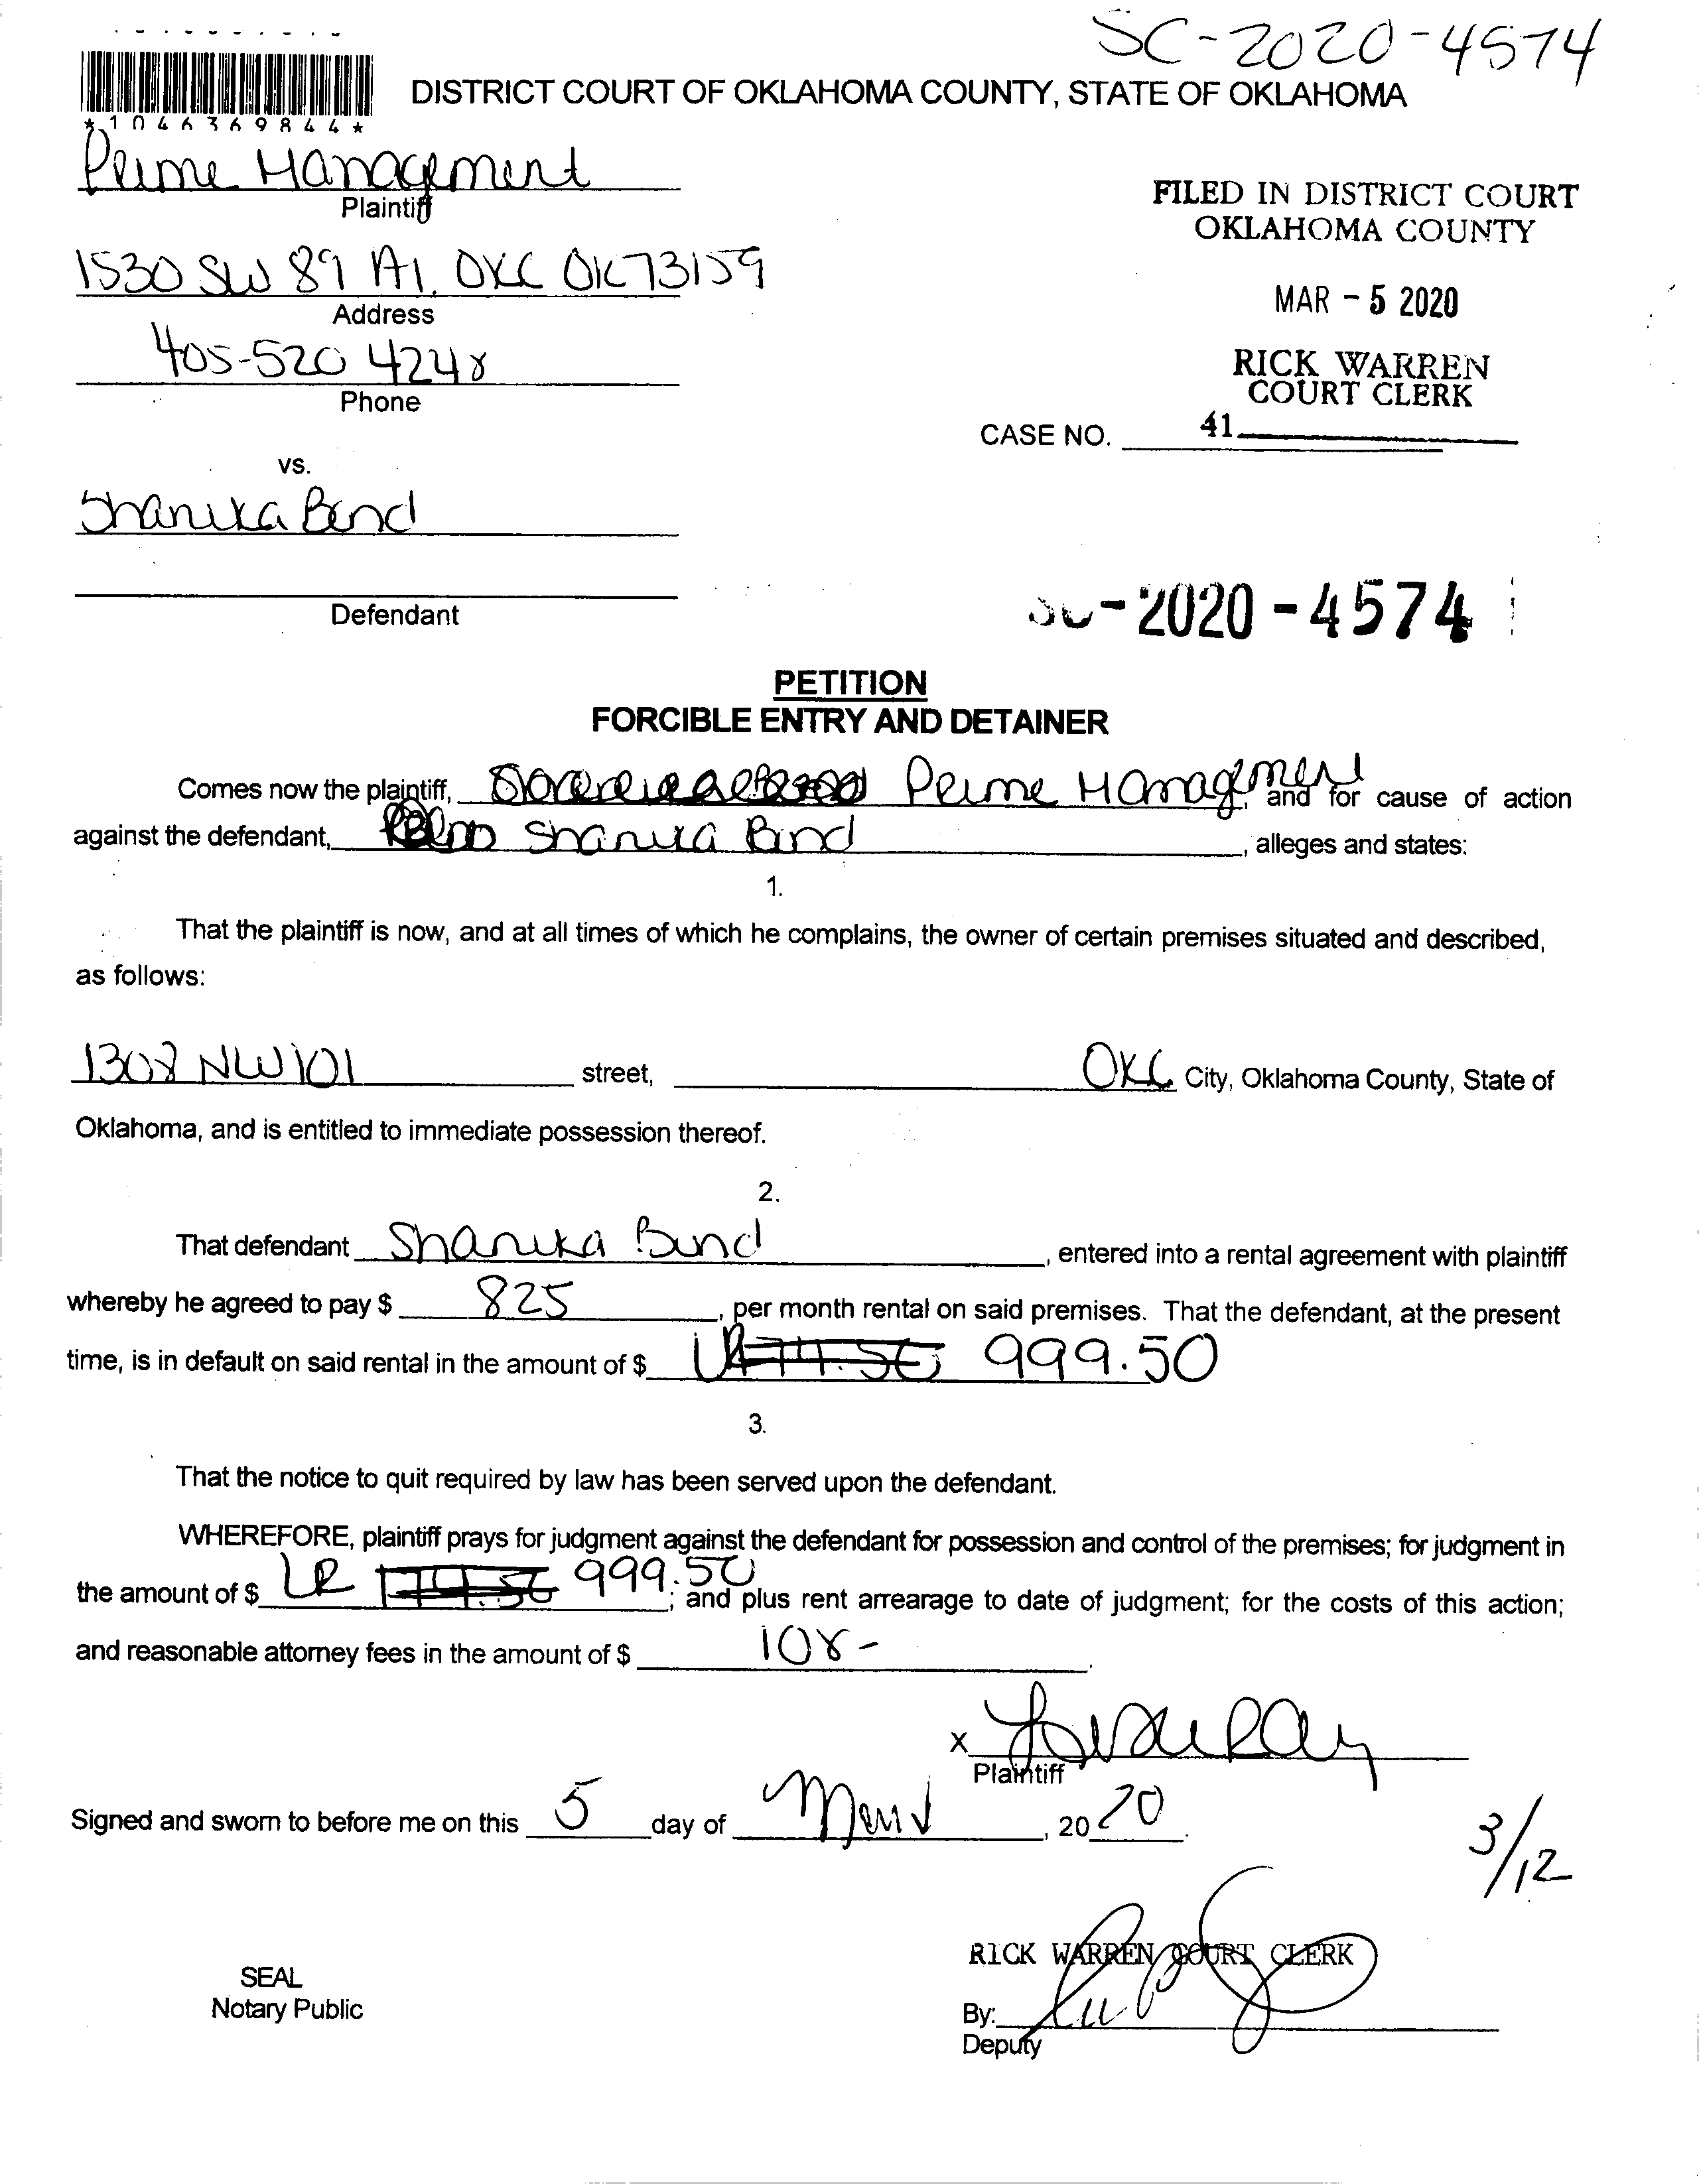 SC-2020-4574
*1046369844*
DISTRICT COURT OF OKLAHOMA COUNTY, STATE OF OKLAHOMA
Prime Management
Plaintiff
FILED IN DISTRICT COURT
OKLAHOMA COUNTY
1530 SW 89 A1. OKC OK 73159
Address
MAR - 5 2020
405-520 4248
Phone
RICK WARREN
COURT CLERK
CASE NO. 41
vs.
Shanika Bend
Defendant
SC-2020-4574
PETITION
FORCIBLE ENTRY AND DETAINER
Comes now the plaintiff, Prime Management, and for cause of action
against the defendant, Shanika Bend, alleges and states:
1.
That the plaintiff is now, and at all times of which he complains, the owner of certain premises situated and described,
as follows:
1308 NW 101 street, OKC City, Oklahoma County, State of
Oklahoma, and is entitled to immediate possession thereof.
2.
That defendant Shanika Bend, entered into a rental agreement with plaintiff
whereby he agreed to pay $ 825, per month rental on said premises. That the defendant, at the present
time, is in default on said rental in the amount of $ LR 999.50
3.
That the notice to quit required by law has been served upon the defendant.
WHEREFORE, plaintiff prays for judgment against the defendant for possession and control of the premises; for judgment in
the amount of $ LR 999.50; and plus rent arrearage to date of judgment; for the costs of this action;
and reasonable attorney fees in the amount of $ 108-.
x
Plaintiff
Signed and sworn to before me on this 5 day of March, 2020.
3/12
RICK WARREN COURT CLERK
SEAL
Notary Public
By:
Deputy